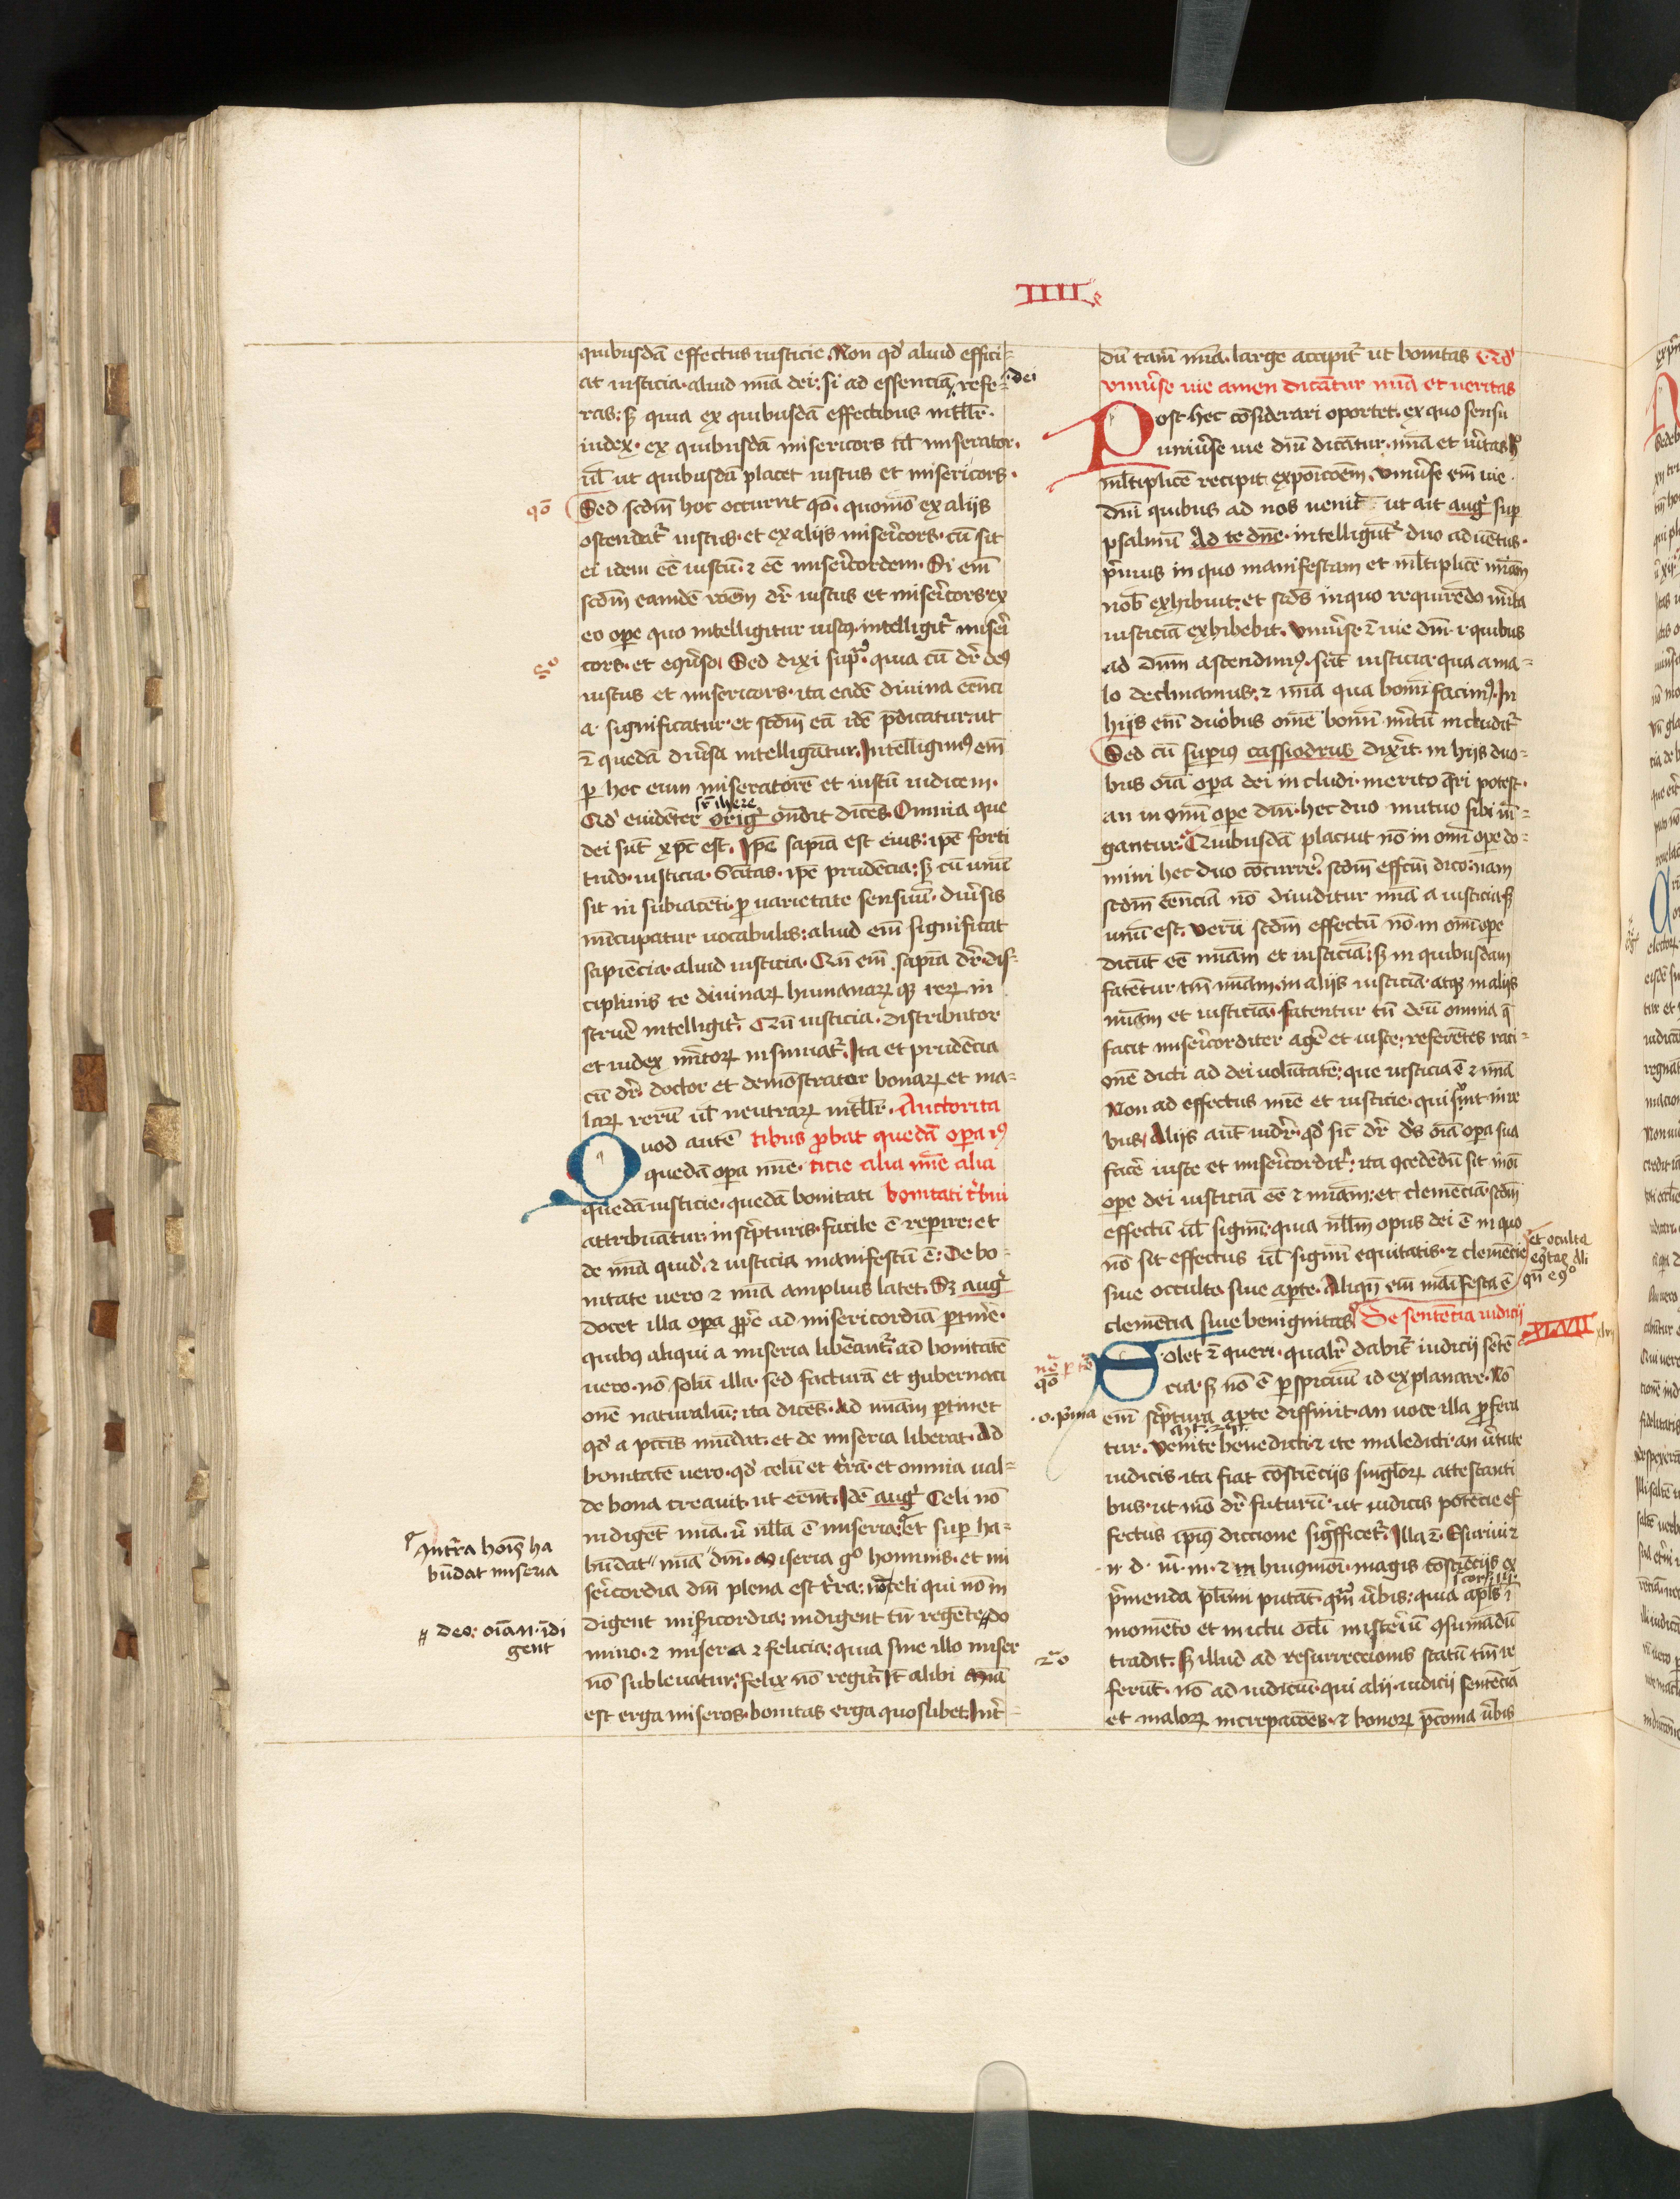 IIII
quibusdā effectus iusticie. Non qd' aliud effici-
at iusticia. aliud mīa dei: si ad essenciā refe-
dei
ras: sꝫ quia ex quibusdā effectibus intllr̄.
iudex. ex quibusdā misericors ul̄ miserator.
ul̄ ut quibusdā placet iustus et misericors.
qō
Sed scdm̄ hoc occurrit qō. quomō ex alijs
ostendat᷑ iustus. et ex alijs misericors. cū sit
ei idem eē iustū. ⁊ eē misericordem. Si em̄
scdm̄ eamdē rōem dr̄ iustus et misericors. ex
eo ope quo intelligitur iustꝰ. intelligit᷑ miseri
cors. et eq̄uerso. Sed dixi supra. quia cū dr̄ deꝰ
iustus et misericors. ita eadē diuina eēnci
a. significatur. et scdm̄ eā idē p̄dicatur: ut
⁊ quedā diu̓sa intelligātur. Intelligimꝰ em̄
ꝑ hec eum miseratorē et iustū iudicem.
Qd' euidēter orig' on̄dit dicēs. Omnia que
dei sūt xp̄c est. Ip̄e sapīa est eius: ip̄e forti
tudo. iusticia. Sc̄itas. ip̄e prudēcia: sꝫ cū unū
sit in subiacēti. ꝓ uarietate sensuū. diu̓sis
nūcupatur uocabulis: aliud em̄ significat
sapiēcia. aliud iusticia. Cū em̄ sapīa dr̄. dis-
ciplinis te diuinaꝝ humanaꝝ qꝫ reꝝ in
struē intelligit᷑. Cū iusticia. distributor
et iudex m̓itoꝝ insinuat᷑. Ita et prudēcia
cū dr̄. doctor et demōstrator bonaꝝ et ma-
laꝝ rerū ul̄ neutraꝝ intllr̄. Auctorita
Quod autē tibus ꝓbat quedā oꝑa iꝰ
quedā oꝑa mīe. ticie alia mīe alia
quedā iusticie. quedā bonitati bonitati t̓bui
attribuātur. in scripturis. facile ē reꝑire: et
de mīa quid'. ⁊ iusticia manifestū ē: De bo-
nitate uero ⁊ mīa amplius latet. Sꝫ aug'
docet illa oꝑa ꝓꝓe ad misericordiā ꝑtinē.
quibꝰ aliqui a miseria liberant᷑: ad bonitatē
uero. nō solū illa. sed facturā et gubernaci
onē naturaliū: ita dicēs. Ad mīam ꝑtinet
qd' a pctīs mūdat. et de miseria liberat. Ad
bonitatē uero. qd' celū et t̓rā. et omnia ual-
de bona creauit. ut eent. Idē aug' Celi nō
indigēt mīa. u' nlla ē miseria: Et suꝑ ha-
In t̓ra hoīs ha
būdat miseria
būdat mīa dn̄i. Miseria gº hominis. et mi
sericordia dn̄i plena est t̓ra: nō celi qui nō in
deo: oīa n̄. īdi
gent
digent misericordia: indigent tn̄ regēte do
mino. ⁊ misera ⁊ felicia: quia sine illo miser
nō subleuatur: felix nō regit᷑. It̄ alibi Mīa
est erga miseros. bonitas erga quoslibet. Int̓
dū tam̄ mīa. large accipit᷑ ut bonitas Qd'
vniu̓se uie amen dicātur mīa et ueritas
Post hec cōsiderari oportet. ex quo sensu
uniu̓se uie dn̄i dicātur. mīa et u̓itas.
mltiplicē recipit exposicōem. Vniu̓se em̄ uie
dn̄i quibus ad nos uenit ut ait aug' suꝑ
psalmū Ad te dn̄e. intelligūt᷑ duo aduētus.
primus in quo manifestam et mltiplicē mīam
nob' exhibuit: et sed̄s in quo requirēdo m̓ita
iusticiā exhibebit. Vniu̓se ⁊ uie dn̄i. i quibus
ad dn̄m ascendimꝰ. sūt iusticia qua a ma-
lo declinamus. ⁊ mīa qua bonū facimꝰ. In
hijs em̄ duobus om̄e bonū m̓itū includit᷑
Sed cū suꝑius cassiodrus dixerit. in hijs duo-
bus oīa oꝑa dei includi. merito q̄ri potest.
an in om̄i ope dn̄i. hec duo mutuo sibi iū-
gantur. Quibusdā placuit nō in om̄i ope do-
mini hec duo cōcurre. scdm̄ effcm̄ dico: nam
scdm̄ eēnciā nō diuiditur mīa a iusticia. sꝫ
unū est. Verū scdm̄ effectū nō in om̄i ope
dicūt eē mīam et iusticiā: sꝫ in quibusdam
fatētur tm̄ mīam. in alijs iusticiā atqꝫ in alijs
mīam et iusticiā. fatentur tn̄ deū omnia q̄
facit misericorditer agē et iuste: referētes raci-
onē dicti ad dei uolūtatē: que iusticia ē ⁊ mīa
Non ad effectus mīe et iusticie. qui sunt in re
bus. Alijs aut̄ uidr̄. qd' sic dr̄ ds oīa oꝑa sua
facē iuste et misericordit᷑: ita ꝯcedēdū sit in oī
ope dei iusticiā eē ⁊ mīam: et clemēciā. scdm̄
effectū ul̄ signū. quia nllm̄ opus dei ē in quo
nō sit effectus ul̄ signū equitatis. ⁊ clemēcie
et oculta
siue occulte siue aꝑte. Aliqn̄ em̄ māifesta ē
clemēcia siue benignitas De sentēcia iudicij
XLVII
xlvij
Solet ⁊ queri. qualr̄ dabit᷑ iudicij sētē
qō
cia. sꝫ nō ē ꝑspicuū id explanare. Nō
.o. prima
em̄ scriptura aꝑte diffinit. an uoce illa ꝓfera
tur. Venite benedicti. ⁊ ite maledicti. an u̓tute
iudicis. ita fiat cōsciēcijs singloꝝ attestanti
bus. ut mō dr̄ futurū. ut iudicis potēcie ef
fectus ip̄ius diccione significet᷑. Illa ⁊. Esuriui ⁊
n. d. m. m. ⁊ in huiꝰmōi. magis cōsciēcijs ex
primenda plimi putāt. qm̄ u̓bis: quia apl̄s ī
momēto et in ictu ocli misteriū ꝯsumādū
2ª o
tradit. Sꝫ illud ad resurreccionis statū tm̄ re
ferūt. nō ad iudiciū. qui alij iudicij sentēcia
et maloꝝ increpacōes. ⁊ bonoꝝ p̄conia u̓bis